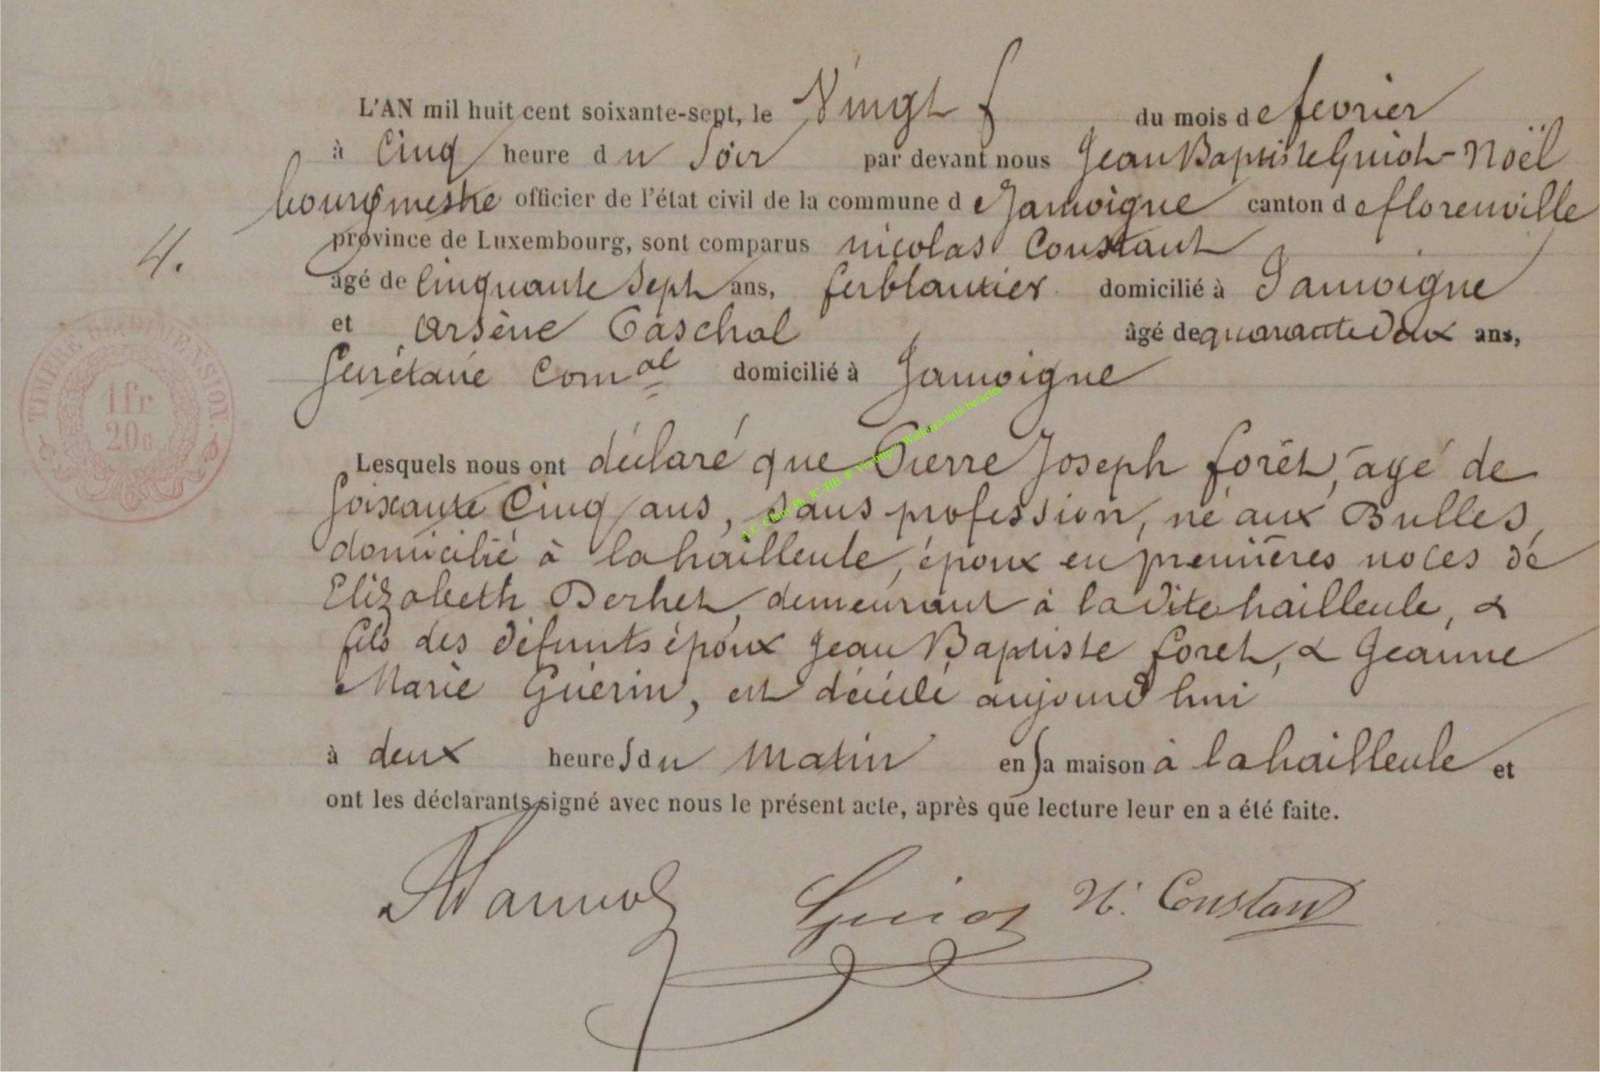 L'AN mil huit cent soixante-sept, le Vingt du mois de fevrier
à Cinq heure du Soir par devant nous Jean Baptiste Guiot-Noël
bourgmestre officier de l'état civil de la commune de Jamoigne canton de florenville
province de Luxembourg, sont comparus nicolas Constant
4.
âgé de Cinquante Sept ans, ferblantier domicilié à Jamoigne
et Arsène Paschal âgé de quarante deux ans,
Secrétaire Comal domicilié à Jamoigne
TIMBRE DE DIMENSION.
1 fr
20c
Lesquels nous ont déclaré que Pierre Joseph forêt, âgé de
Soixante Cinq ans, Sans profession, né aux Bulles,
domicilié à lahailleule, époux en premières noces de
Elizabeth Derhet, demeurant à la dite hailleule, &
fils des défunts époux Jean Baptiste foret, & Jeanne
Marie Guérin, est décédé aujourd'hui
à deux heures du matin en sa maison à lahailleule et
ont les déclarants signé avec nous le présent acte, après que lecture leur en a été faite.
Guiot N. Constant